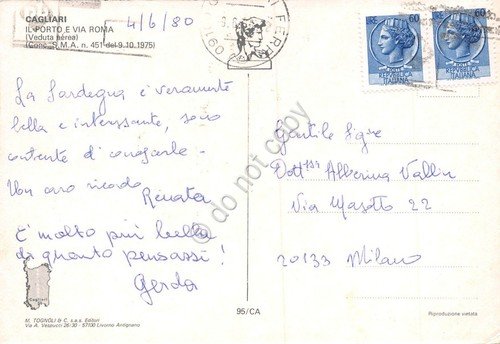 CAGLIARI
IL PORTO E VIA ROMA
(Veduta aerea)
(Conc. S.M.A. n. 451 del 9.10.1975)
4/6/80
LIRE 60
REPUBBLICA
ITALIANA
LIRE 60
REPUBBLICA
ITALIANA
La Sardegna è veramente
bella e interessante, sono
contente di conoscerla -
Un caro ricordo
Renata
È molto più bella
di quanto pensassi!
Gerda
Gentile Sig.ra
Dott.ssa Alberina
Via Masotto 22
20133 Milano
do not copy
Cagliari
M. TOGNOLI & C. s.a.s. Editori
Via A. Vespucci 26/30 - 57100 Livorno Antignano
95/CA
Riproduzione vietata